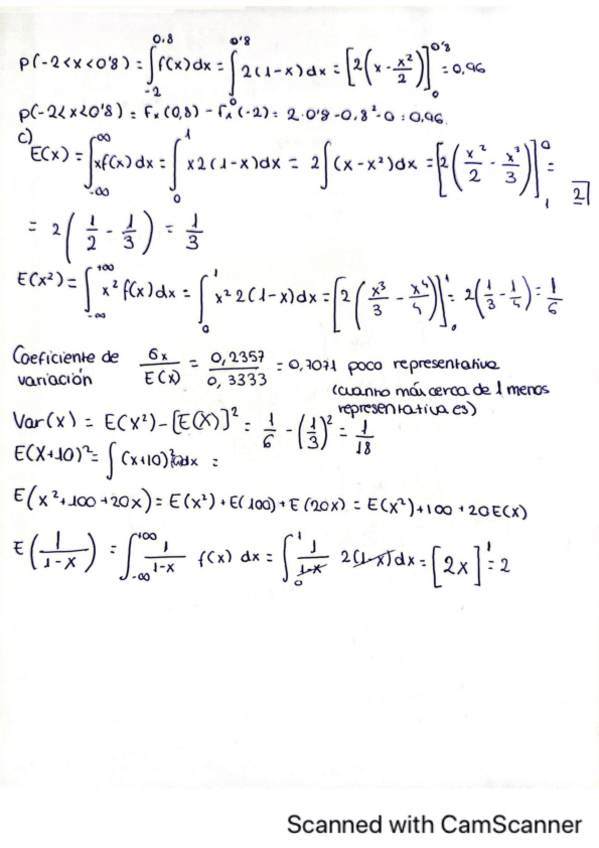 P(-2<x<0'8) = ∫_{-2}^{0,8} f(x)dx = ∫_{0}^{0'8} 2(1-x)dx = [2(x - x²/2)]_{0}^{0'8} = 0,96
P(-2<x<0'8) = Fx(0,8) - Fx(-2) = 2·0'8 - 0,8² - 0 = 0,96.
c)
E(x) = ∫_{-∞}^{∞} xf(x)dx = ∫_{0}^{1} x2(1-x)dx = 2∫(x-x²)dx = [2(x²/2 - x³/3)]_{1}^{0} =
2
= 2(1/2 - 1/3) = 1/3
E(x²) = ∫_{-∞}^{+∞} x² f(x)dx = ∫_{0}^{1} x² 2(1-x)dx = [2(x³/3 - x⁴/4)]_{0}^{1} = 2(1/3 - 1/4) = 1/6
Coeficiente de variación σx/E(x) = 0,2357/0,3333 = 0,7071 poco representativa
(cuanto más cerca de 1 menos representativa es)
Var(x) = E(x²) - [E(X)]² = 1/6 - (1/3)² = 1/18
E(X+10)² = ∫(x+10)² dx =
E(x²+100+20x) = E(x²) + E(100) + E(20x) = E(x²) + 100 + 20E(x)
E(1/(1-x)) = ∫_{-∞}^{+∞} 1/(1-x) f(x) dx = ∫_{0}^{1} 1/(1-x) 2(1-x)dx = [2x]^{1} = 2
Scanned with CamScanner